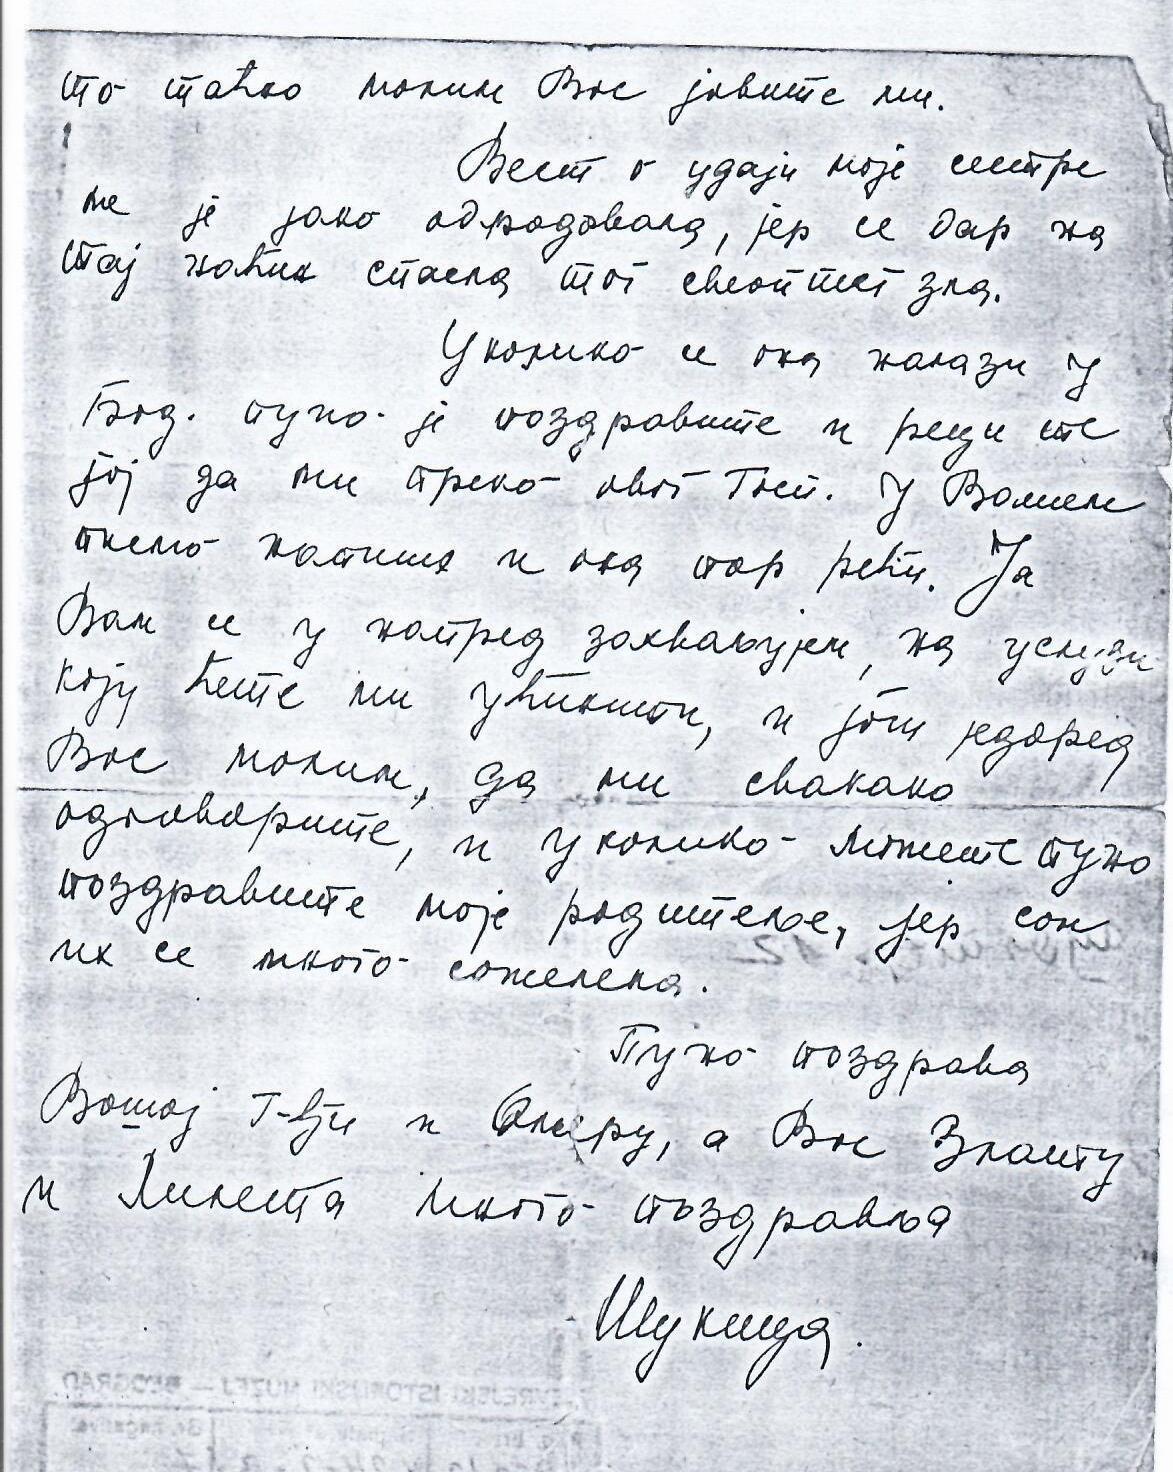 то тачно молим Вас јавите ми.
Вест о удаји моје сестре
ме је јако обрадовала, јер се бар на
тај начин спасла тог свеопштег зла.
Уколико се она налази у
Беог. пуно је поздравите и реците
јој да ми преко овог Госп. у Вашем
писмо напише и она пар речи. Ја
Вам се у напред захваљујем, на услузи
коју ћете ми учинити, и још једоред
Вас молим, да ми свакако
одговорите, и уколико можете пуно
поздравите моје родитеље, јер сам
их се много зажелела.
Пуно поздрава
Вашој Г-ђи и а Вас Злату
и много поздравља
EVREJSKI ISTORIJSKI MUZEJ – BEOGRAD